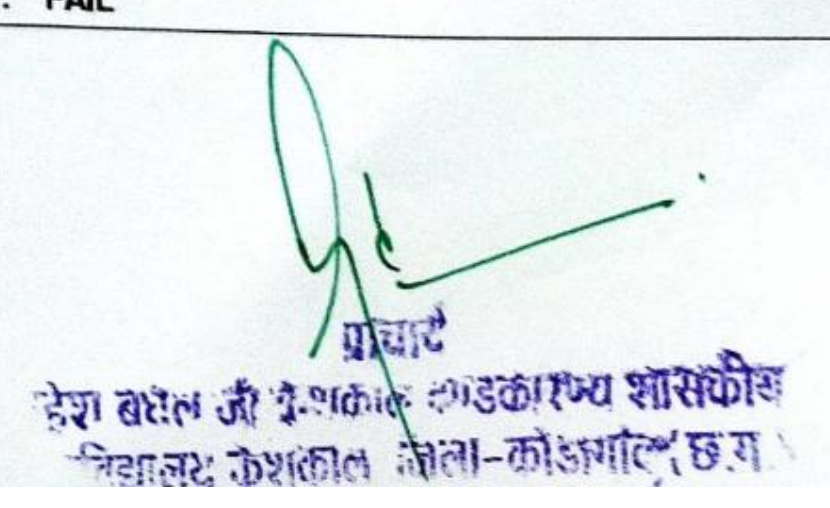 : FAIL
प्राचार्य
बघेल जी केशकाल दण्डकारण्य शासकीय
केशकाल जिला-कोंडागांव (छ.ग.